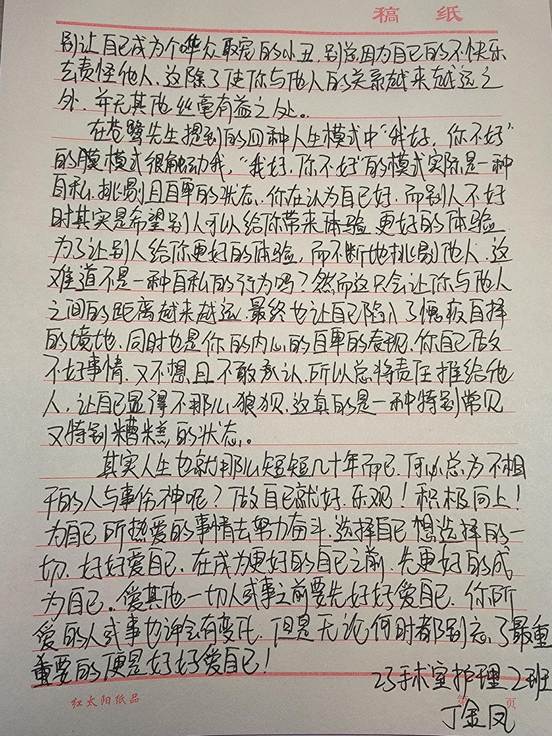 稿 纸
别让自己成为个哗众取宠的小丑，别总因为自己的不快乐
去责怪他人，这除了使你与他人的关系越来越远之
外，并无其他丝毫有益之处。
在苍鹭先生提到的四种人生模式中"我好，你不好"
的膜模式很触动我，"我好，你不好"的模式实际是一种
自私、挑剔且自卑的状态，你在认为自己好，而别人不好
时其实是希望别人可以给你带来体验，更好的体验
为了让别人给你更好的体验，而不断地挑剔他人，这
难道不是一种自私的行为吗？然而这只会让你与他人
之间的距离越来越远，最终也让自己陷入了愧疚自择
的境地，同时也是你的内心的自卑的表现，你自己做又
不好事情，又不想，且不敢承认，所以总将责任推给他
人，让自己显得不那么狼狈，这真的是一种特别常见
又特别糟糕的状态。
其实人生也就那么短短几十年而已，何必总为不相
干的人与事伤神呢？做自己就好，乐观！积极向上！
为自己所热爱的事情去努力奋斗，选择自己想选择的一
切，好好爱自己，在成为更好的自己之前，先更好的成
为自己。爱其他一切人或事之前要先好好爱自己，你所
爱的人或事也许会有变化，但是无论何时都别忘了最重
重要的便是好好爱自己！
23手术室护理2班
红太阳纸品 页
丁金凤